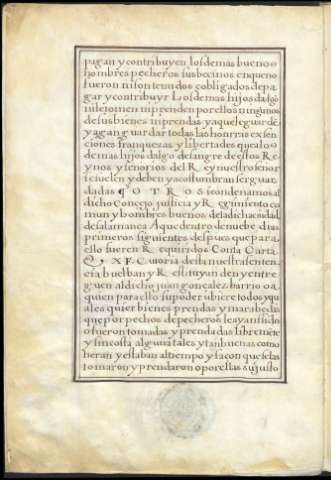 pagan y contribuyen los demas buenos
hombres pecheros sus vecinos en que no
fueron ni son tenudos e obligados de pa
gar y contribuyr Los demas hijos dalgo
ni le tomen ni prenden por ellos ningunos
de sus bienes ni prendas y a que le guarde
y agan guardar todas las honrras exsen
ciones franquezas y libertades que a lo
de mas hijos dalgo de sangre de estos Re
ynos y señorios del Rey nuestro señor
se suelen y deben y acostumbran ser guar
dadas OTROSí condenamos al
dicho Concejo justicia y Regimiento co
mun y hombres buenos de la dicha ciudad
de salamanca A que dentro de nuebe dias
primeros siguientes despues que para
ello fueren Requiridos Con la Carta
executoria desta nuestra senten
cia buelban y Restituyan den y entre
guen al dicho juan gonçalez barrioo a
quien para ello su poder ubiere todos y qua
les quier bienes prendas y marabedis
que por pechos de pecheros les ayan sido
o fueron tomadas y prendadas libremente
y sin costa alguna tales y tan buenas como
heran y estaban al tiempo y saçon que se las
tomaron y prendaron o por ellas su justo